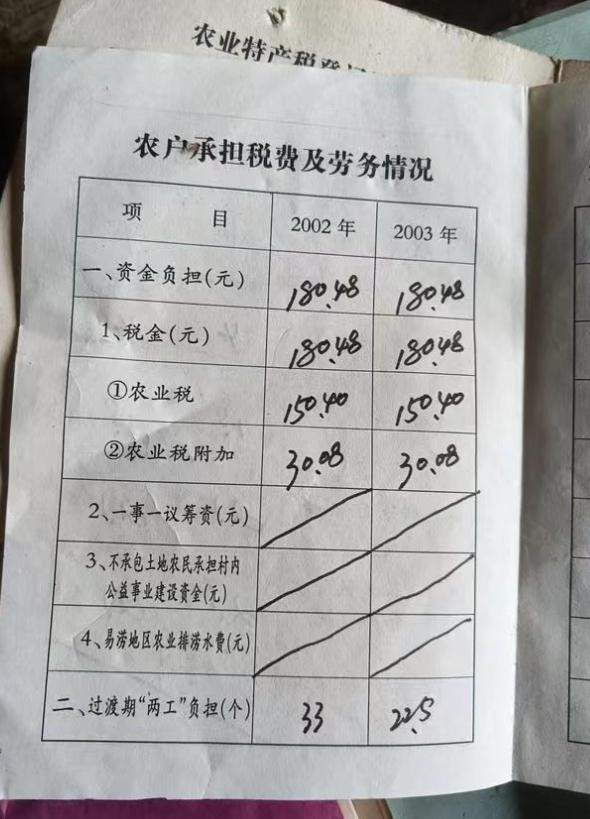 农业特产税登
农户承担税费及劳务情况
项 目 2002年 2003年
一、资金负担(元) 180.48 180.48
1、税金(元) 180.48 180.48
①农业税 150.40 150.40
②农业税附加 30.08 30.08
2、一事一议筹资(元)
3、不承包土地农民承担村内
公益事业建设资金(元)
4、易涝地区农业排涝水费(元)
二、过渡期“两工”负担(个) 33 22.5